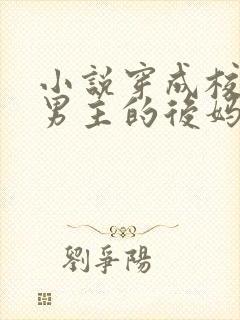 小說穿成校
男主的後媽
劉爭陽